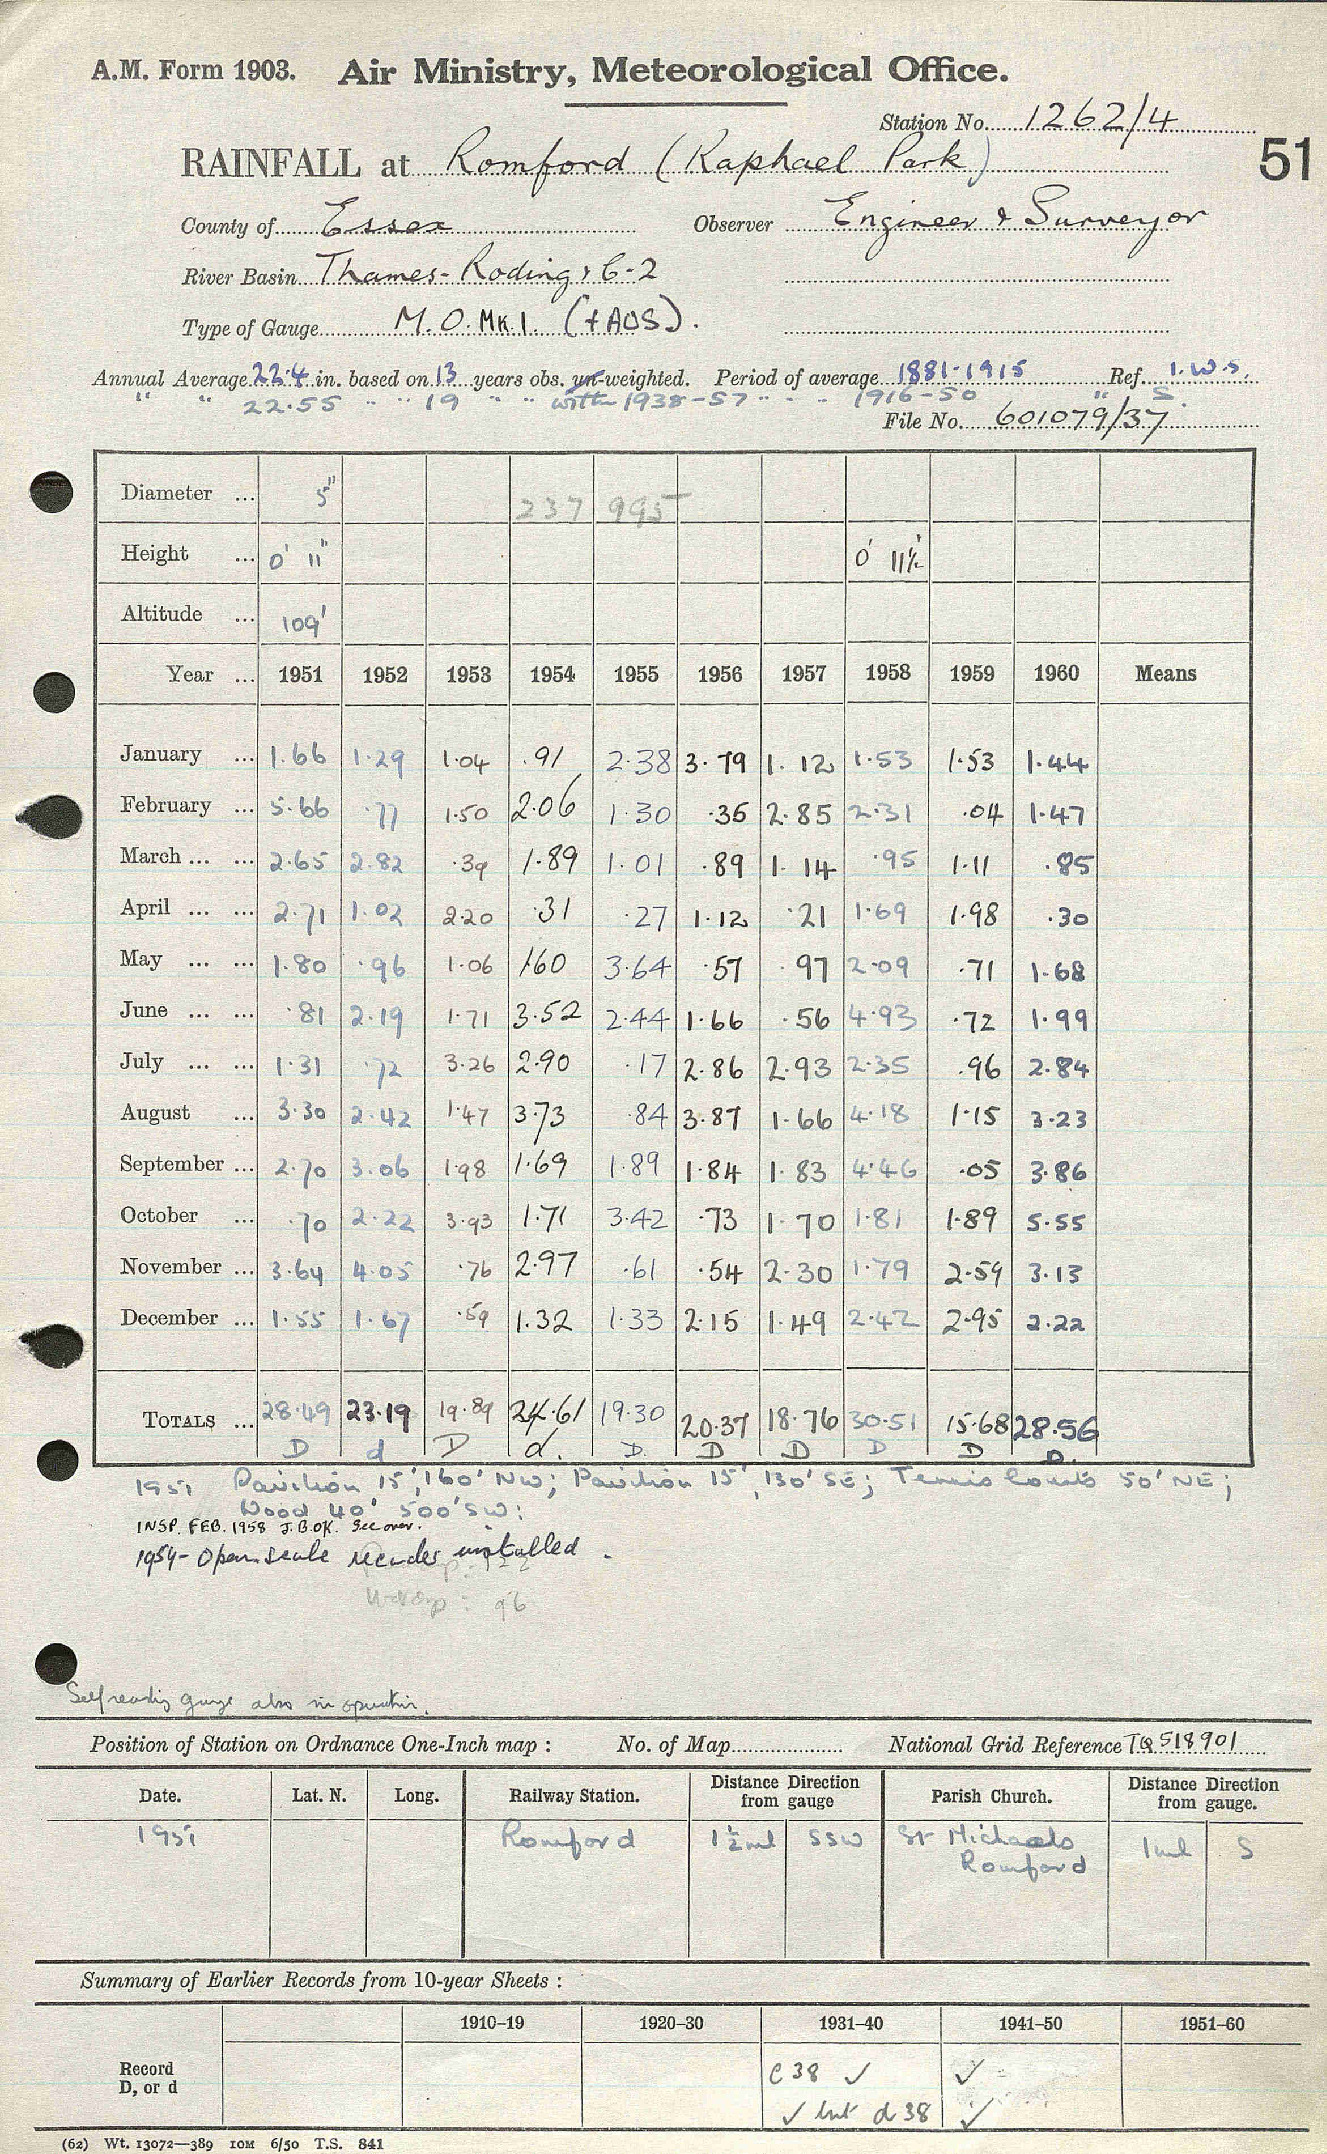 A.M. Form 1903. Air Ministry, Meteorological Office.
Station No. 1262/4
RAINFALL at Romford (Raphael Park)
51
County of Essex Observer Engineer & Surveyor
River Basin Thames-Roding 6-2
Type of Gauge M.O. Mk.1. (+AOS).
Annual Average 22.4 in. based on 13 years obs. un-weighted. Period of average 1881-1915 Ref. I.W.S.
" " 22.55 " " 19 " " with 1938-57 " " " 1916-50 " S.
File No. 601079/37
Diameter ... 5" 237 995
Height ... 0' 11" 0' 11½"
Altitude ... 109'
Year ... 1951 1952 1953 1954 1955 1956 1957 1958 1959 1960 Means
January ... 1.66 1.29 1.04 .91 2.38 3.79 1.12 1.53 1.53 1.44
February ... 5.66 .77 1.50 2.06 1.30 .35 2.85 2.31 .04 1.47
March ... ... 2.65 2.82 .39 1.89 1.01 .89 1.14 .95 1.11 .85
April ... ... 2.71 1.02 2.20 .31 .27 1.12 .21 1.69 1.98 .30
May ... ... 1.80 .96 1.06 1.60 3.64 .57 .97 2.09 .71 1.68
June ... ... .81 2.19 1.71 3.52 2.44 1.66 .56 4.93 .72 1.99
July ... ... 1.31 .72 3.26 2.90 .17 2.86 2.93 2.35 .96 2.84
August ... 3.30 2.42 1.47 3.73 .84 3.87 1.66 4.18 1.15 3.23
September ... 2.70 3.06 1.98 1.69 1.89 1.84 1.83 4.46 .05 3.86
October ... .70 2.22 3.93 1.71 3.42 .73 1.70 1.81 1.89 5.55
November ... 3.64 4.05 .76 2.97 .61 .54 2.30 1.79 2.59 3.13
December ... 1.55 1.67 .59 1.32 1.33 2.15 1.49 2.42 2.95 2.22
TOTALS ... 28.49 23.19 19.89 24.61 19.30 20.37 18.76 30.51 15.68 28.56
D d D d. D. D D D D D.
1951 Pavilion 15', 160' NW; Pavilion 15', 130' SE; Tennis Courts 50' NE;
Wood 40' 500' SW:
INSP. FEB. 1958 J.B. OK. See over.
1954- Open scale recorder installed.
96
Self reading gauge also in operation.
Position of Station on Ordnance One-Inch map : No. of Map National Grid Reference TQ 518901
Date. Lat. N. Long. Railway Station. Distance Direction from gauge Parish Church. Distance Direction from gauge.
1951 Romford 1½ml SSW St Michaels 1ml S
Romford
Summary of Earlier Records from 10-year Sheets :
1910-19 1920-30 1931-40 1941-50 1951-60
Record D, or d
C 38 ✓ ✓
✓ but d 38 ✓
(62) Wt. 13072—389 10M 6/50 T.S. 841